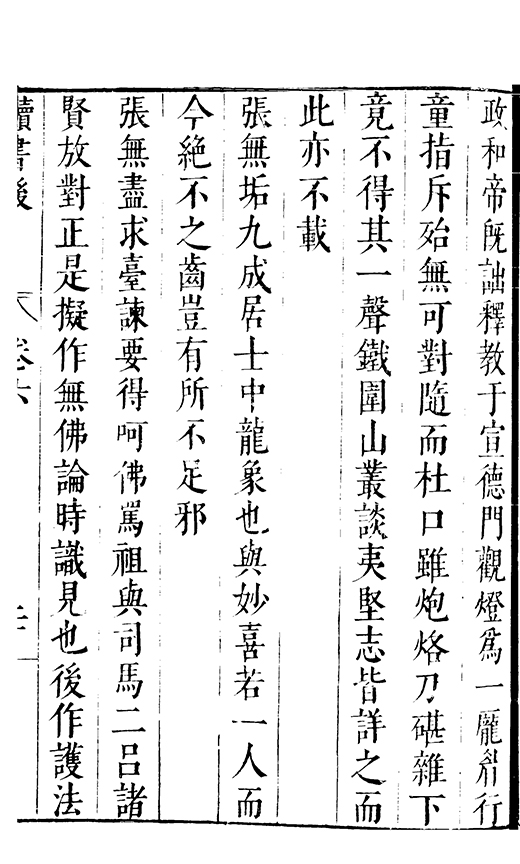 政和帝既詘釋教于宣德門觀燈為一厖眉行
童指斥殆無可對隨而杜口雖炮烙刀碪雜下
竟不得其一聲鐵圍山叢談夷堅志皆詳之而
此亦不載
張無垢九成居士中龍象也與妙喜若一人而
今絕不之齒豈有所不足邪
張無盡求臺諫要得呵佛罵祖與司馬二呂諸
賢放對正是擬作無佛論時識見也後作護法
讀書後
卷六